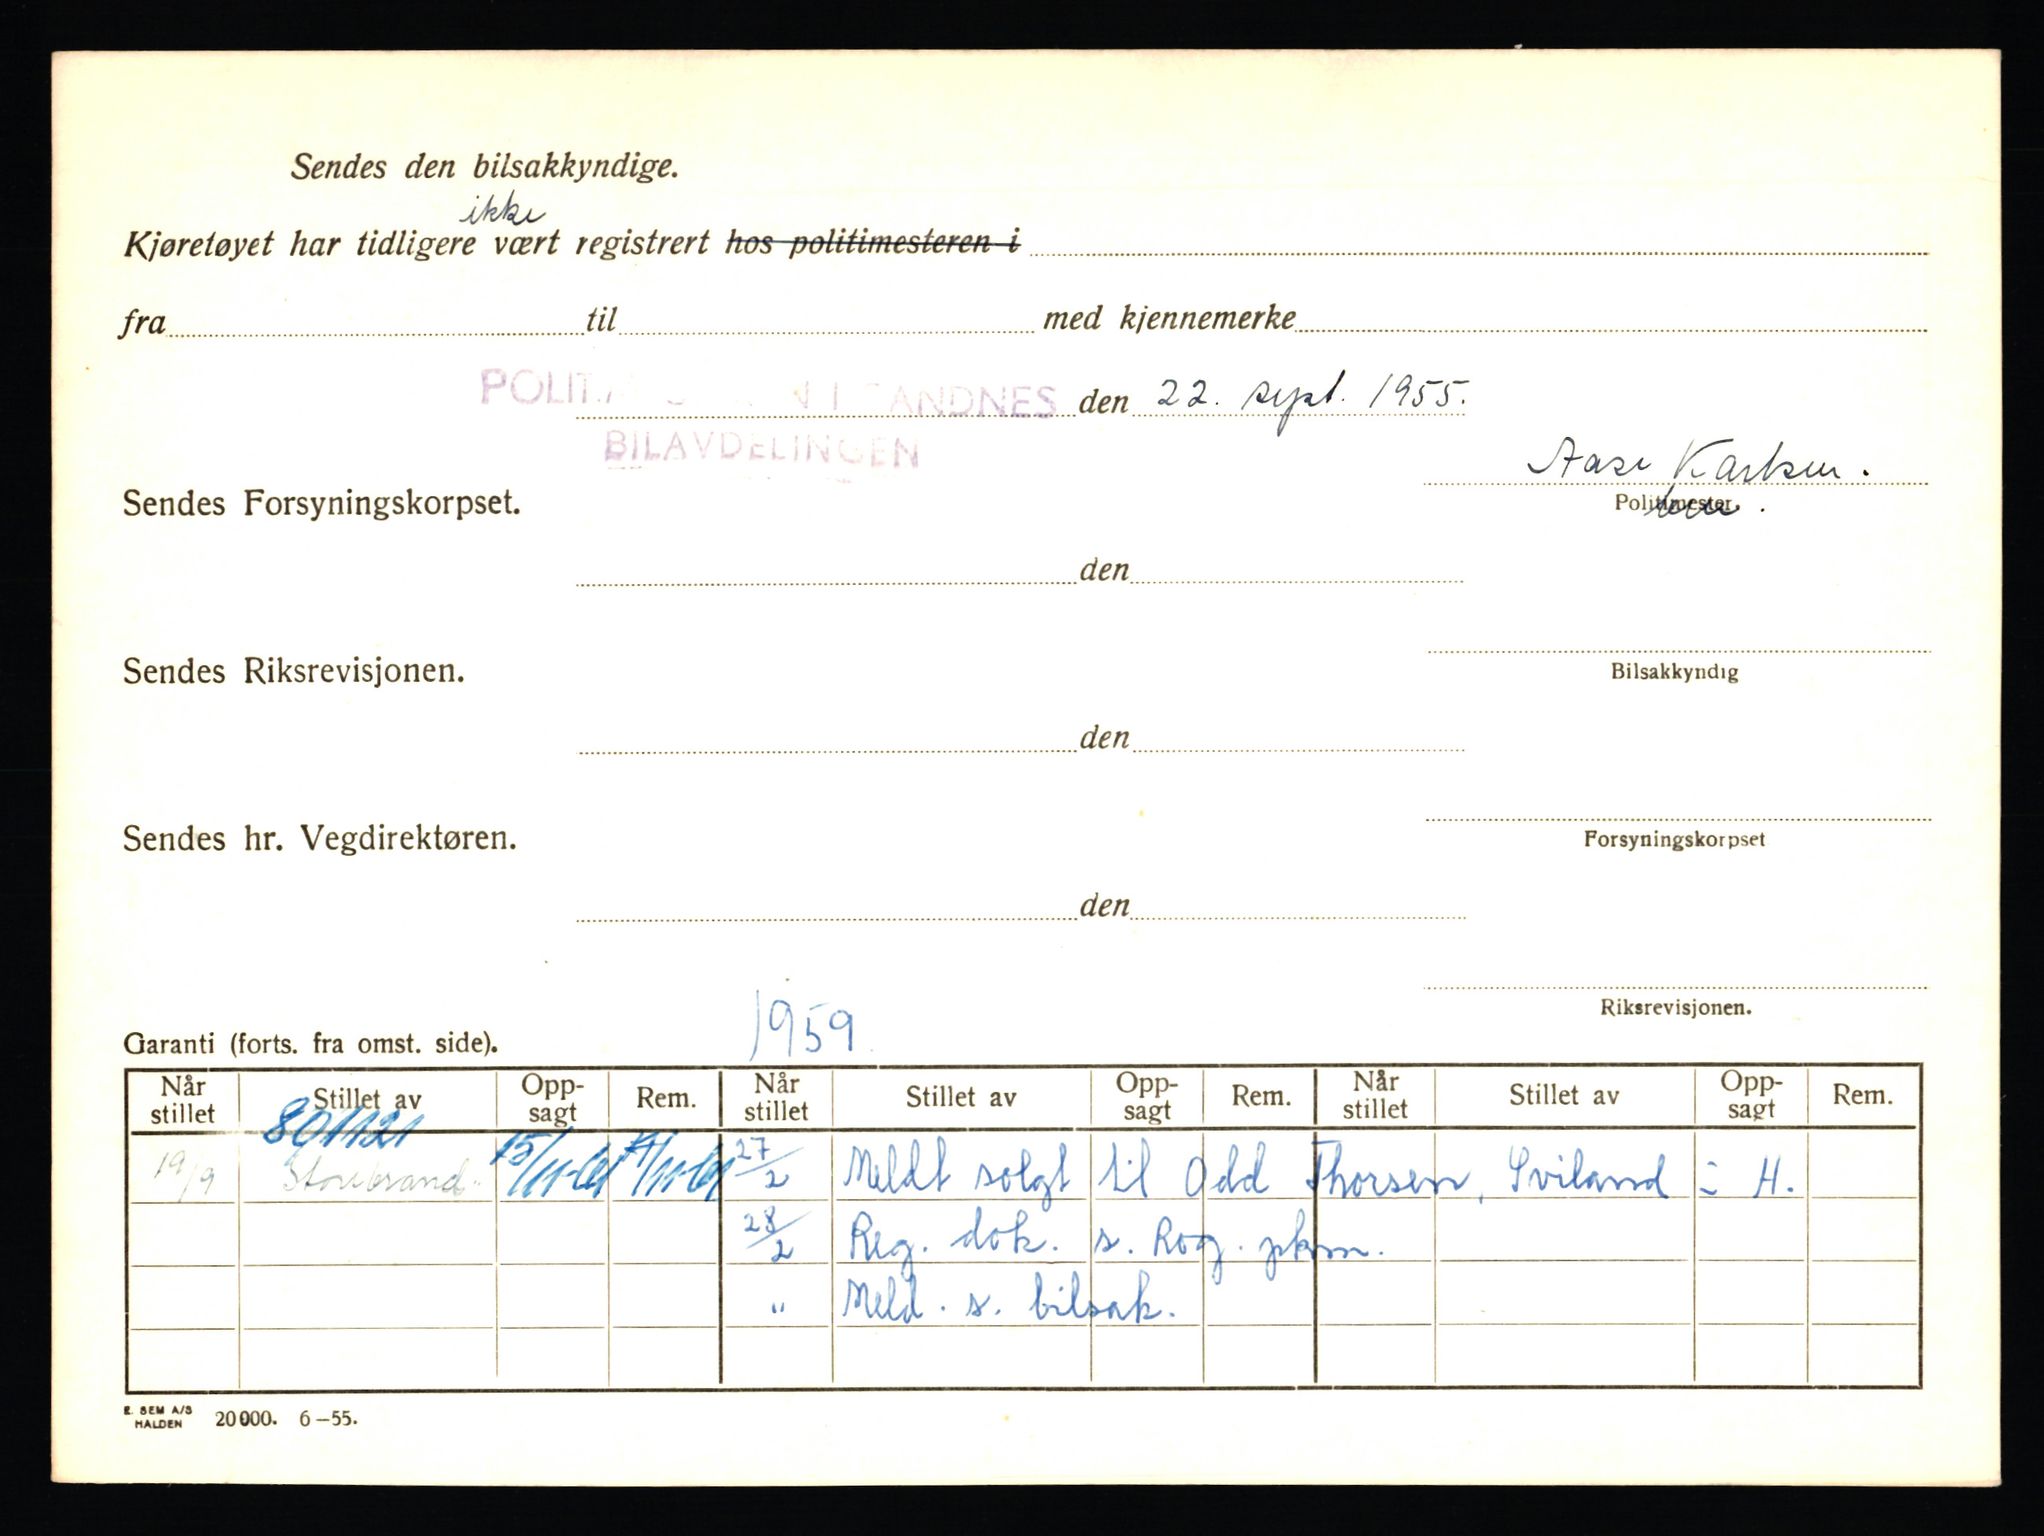 Sendes den bilsakkyndige.
ikke
Kjøretøyet har tidligere vært registrert hos politimesteren i
fra til med kjennemerke
POLITI ANDNES den 22. sept. 1955.
BILAVDELINGEN
Aase Karlsen.
Sendes Forsyningskorpset.
Politimester.
den
Sendes Riksrevisjonen.
Bilsakkyndig
den
Sendes hr. Vegdirektøren.
Forsyningskorpset
den
Riksrevisjonen.
1959
Garanti (forts. fra omst. side).
Når stillet Stillet av Opp-sagt Rem. Når stillet Stillet av Opp-sagt Rem. Når stillet Stillet av Opp-sagt Rem.
801121
19/9 Storebrand. 15/11-61 27/2 Meldt solgt til Odd Thorsen, Sviland i H.
28/2 Reg. dok. s. Rog. pkm.
" Meld. s. bilsak.
E. SEM A/S
HALDEN 20000. 6-55.